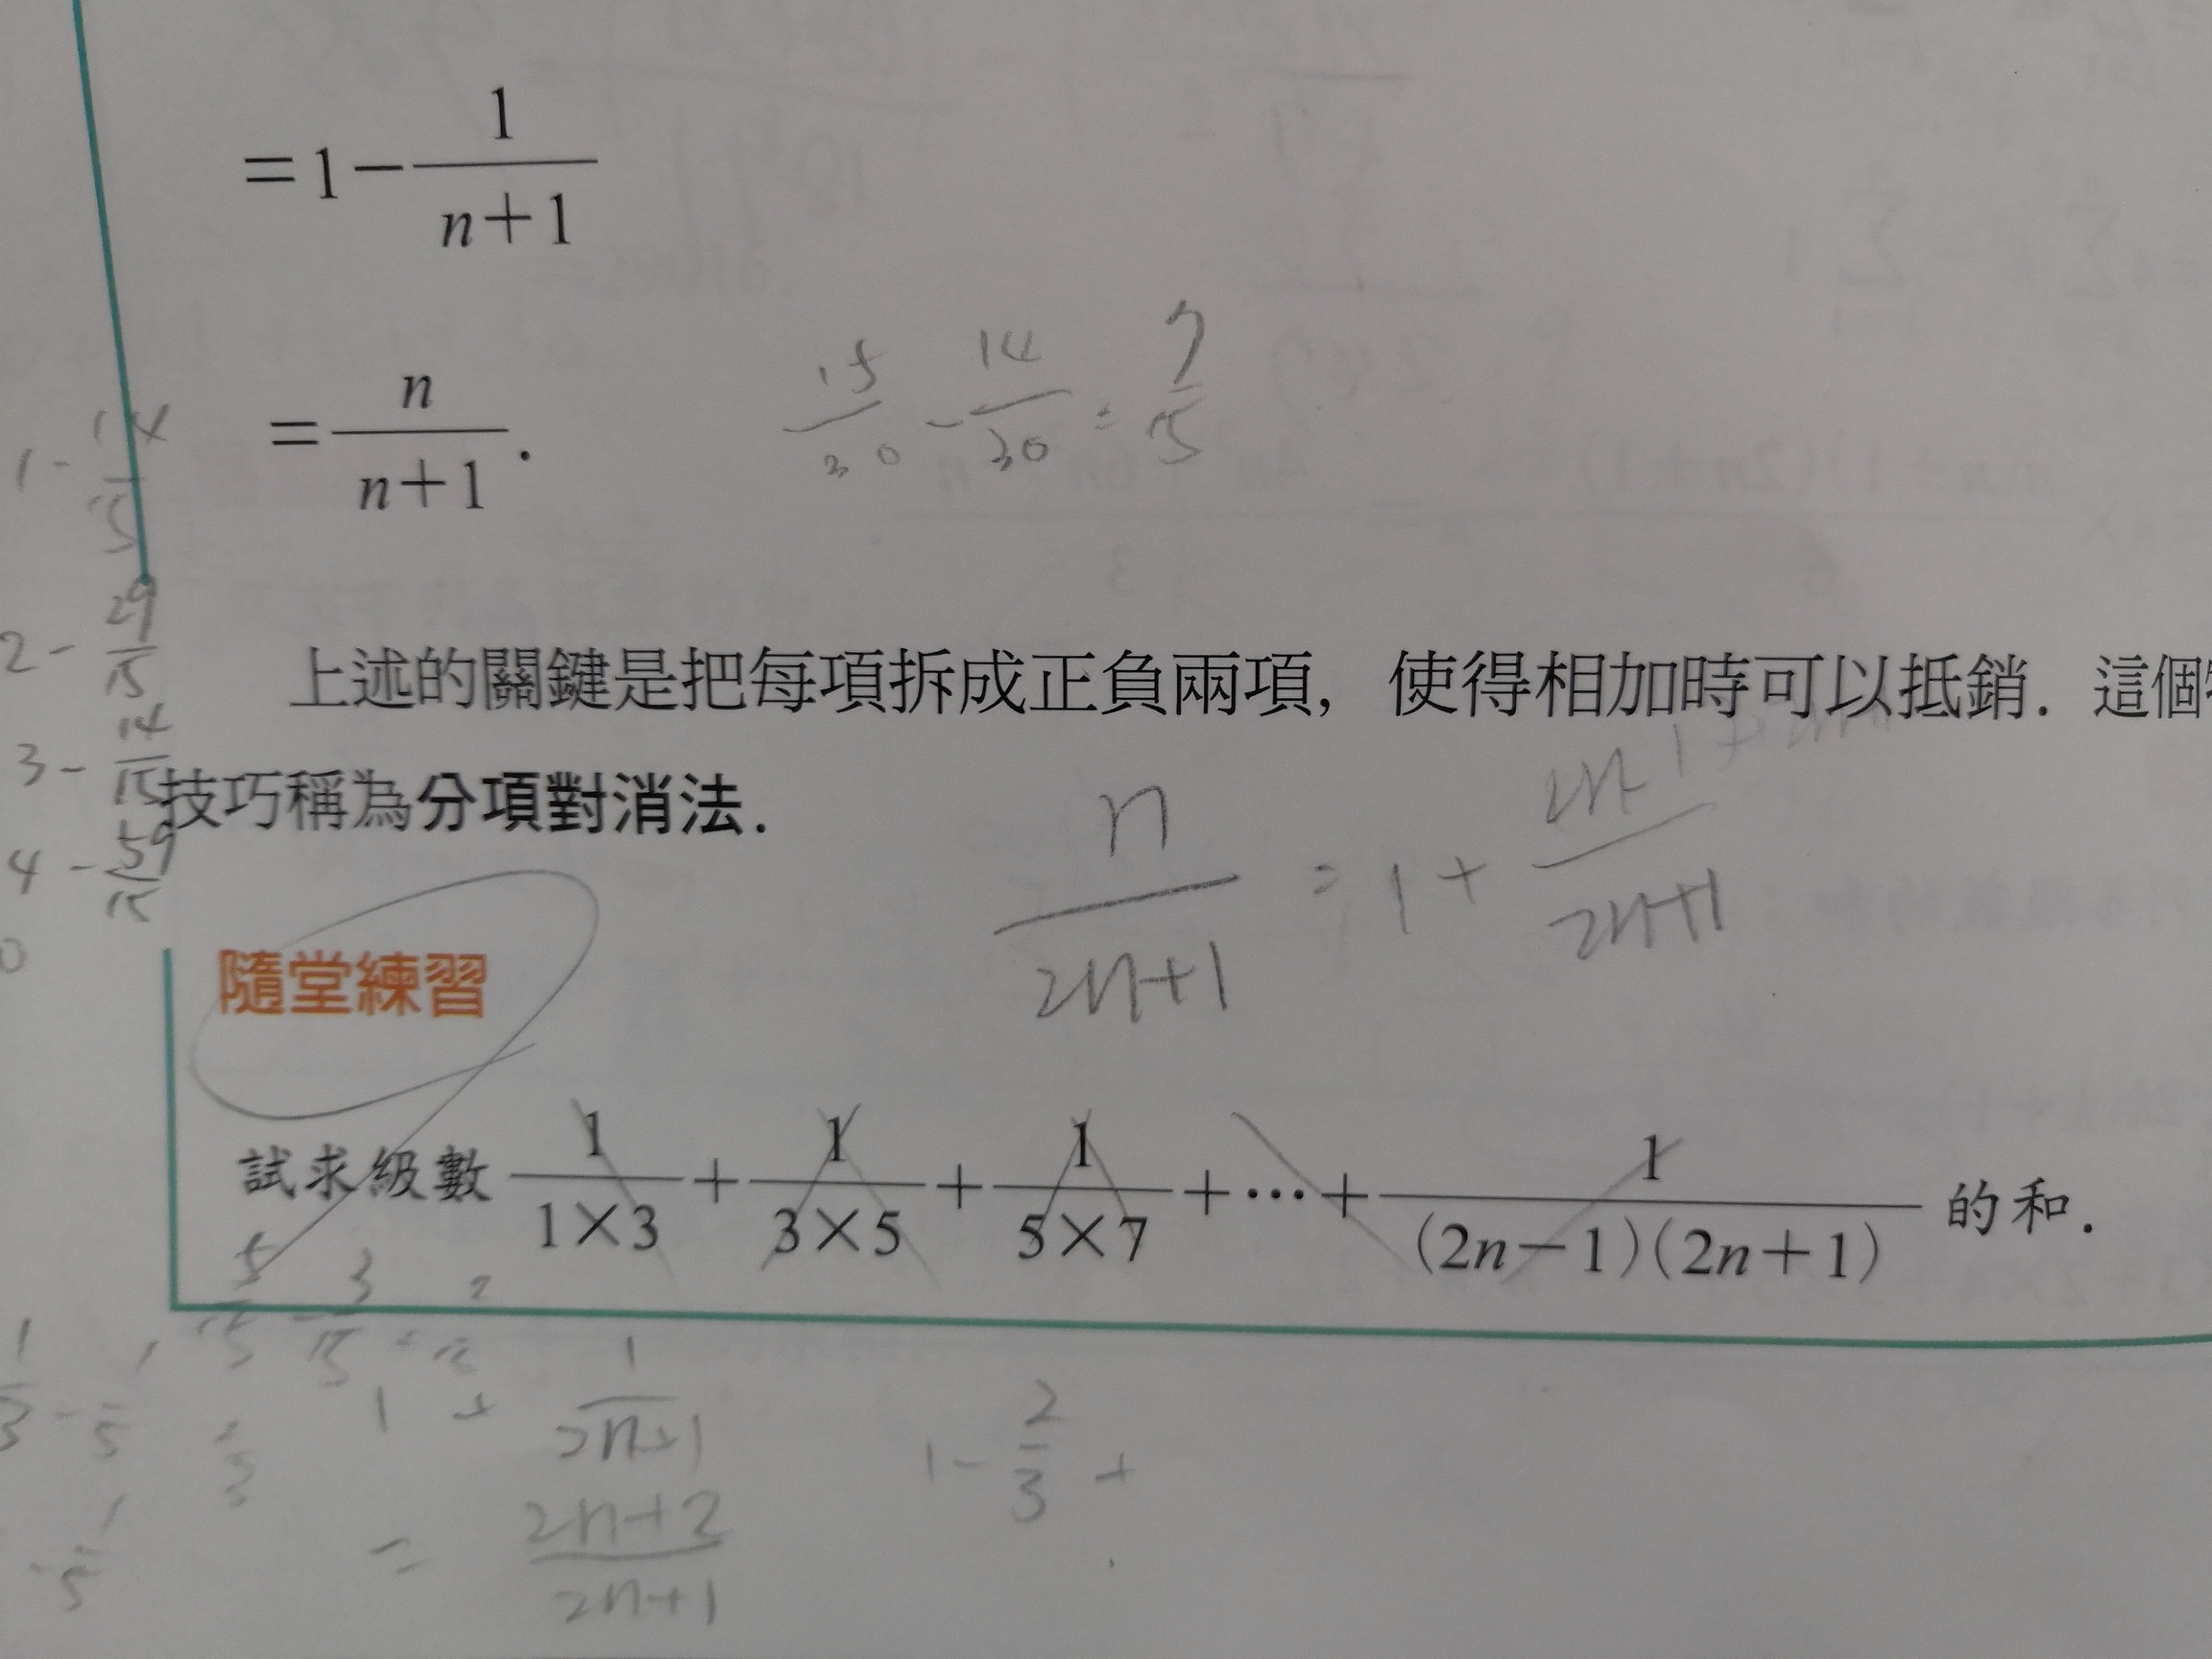 =1-\frac{1}{n+1}
=\frac{n}{n+1}.
\frac{15}{30}-\frac{14}{30}=\frac{7}{15}
1-\frac{14}{15}
2-\frac{29}{15}
上述的關鍵是把每項拆成正負兩項, 使得相加時可以抵銷. 這個
3-\frac{14}{15}
技巧稱為分項對消法.
4-\frac{59}{15}
\frac{n}{2n+1}=1+
隨堂練習
試求級數\frac{1}{1×3}+\frac{1}{3×5}+\frac{1}{5×7}+⋯+\frac{1}{(2n-1)(2n+1)}的和.
\frac{5}{15}-\frac{3}{15}=\frac{2}{15}
\frac{1}{3}-\frac{1}{5}
1+\frac{1}{2n+1}
1-\frac{2}{3}+
=\frac{2n+2}{2n+1}
-\frac{1}{5}